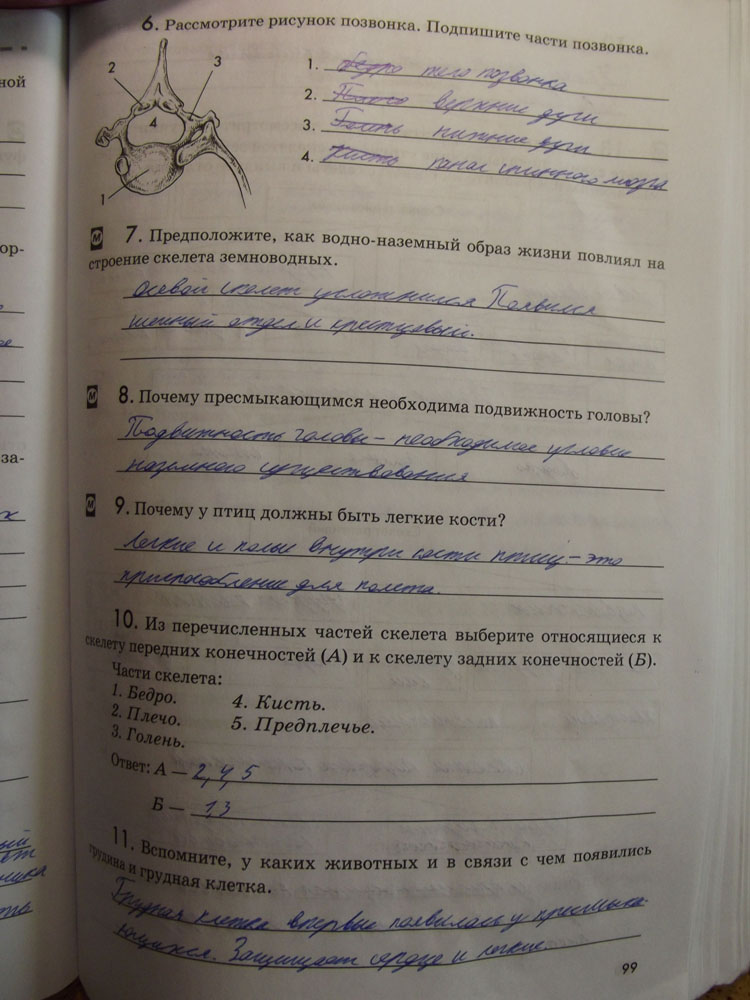 6. Рассмотрите рисунок позвонка. Подпишите части позвонка.
2
3
4
1
1. бедро тело позвонка
2. Плечо верхние дуги
3. Голень нижние дуги
4. Кисть канал спинного мозга
М 7. Предположите, как водно-наземный образ жизни повлиял на
строение скелета земноводных.
осевой скелет усложнился Появился
шейный отдел и крестцовый.
М 8. Почему пресмыкающимся необходима подвижность головы?
Подвижность головы – необходимое условие
наземного существования
М 9. Почему у птиц должны быть легкие кости?
Легкие и полые внутри кости птиц – это
приспособление для полета.
10. Из перечисленных частей скелета выберите относящиеся к
скелету передних конечностей (А) и к скелету задних конечностей (Б).
Части скелета:
1. Бедро.
2. Плечо.
3. Голень.
4. Кисть.
5. Предплечье.
Ответ: А — 2, 4, 5
Б — 1,3
11. Вспомните, у каких животных и в связи с чем появились
грудина и грудная клетка.
Грудная клетка впервые появилась у пресмыка-
ющихся. Защищает сердце и легкие.
99
ной
ор-
за-